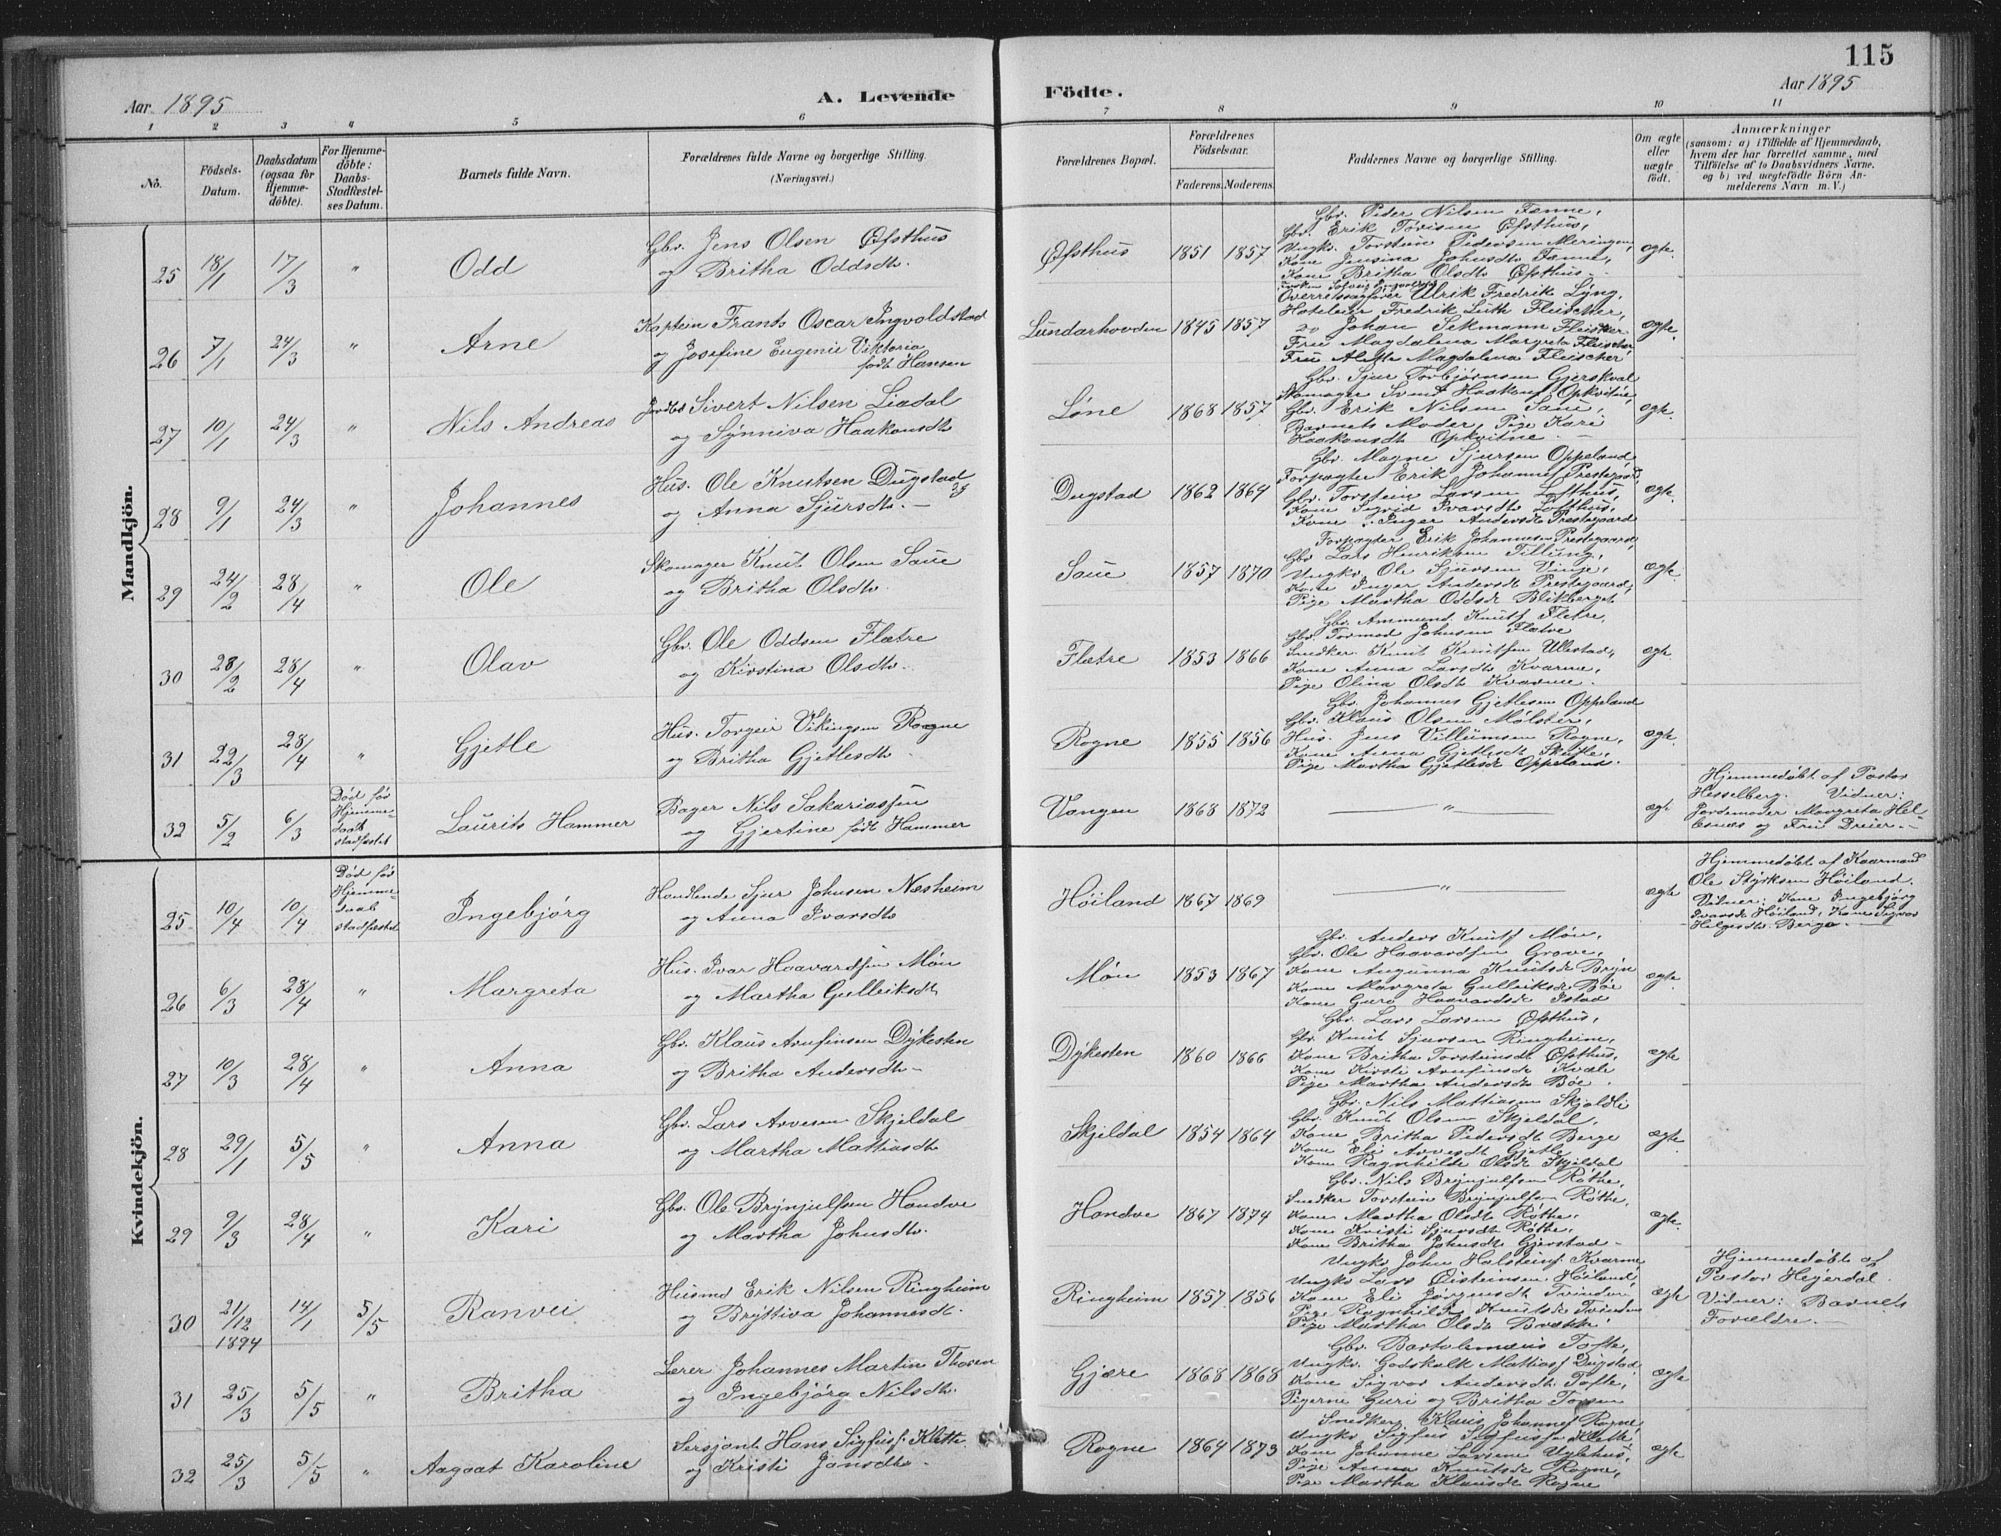 115
Aar 1895
A. Levende
Födte.
Aar 1895
1 2 3 4 5 6 7 8 9 10 11
No.
Födsels-Datum.
Daabsdatum (ogsaa for Hjemme-döbte).
For Hjemme-döbte: Daabs-Stadfæstel-ses Datum.
Barnets fulde Navn.
Forældrenes fulde Navne og borgerlige Stilling.
(Næringsvei.)
Forældrenes Bopæl.
Forældrenes Födselsaar.
Faderens. Moderens.
Faddernes Navne og borgerlige Stilling.
Om ægte eller uægte födt.
Anmærkninger
(saasom: a) i Tilfælde af Hjemmedaab, hvem der har forrettet samme, med Tilföielse af to Daabsvidners Navne, og b) ved uægtefödte Börn An-melderens Navn m. V.)
Mandkjön.
25 18/1 17/3 " Odd
Gbr. Jens Olsen Øfsthus
og Britha Oddsdtr.
Øfsthus 1851 1857
Gbr. Peder Nilsen Fenne,
Gbr. Erik Torisen Øfsthus,
Ungk. Torstein Pedersen Meringen,
Kone Jensina Johnsdtr Fenne,
Kone Britha Olsdtr Øfsthus.
ægte.
26 7/1 24/3 " Arne
Kaptein Frants Oscar Ingvoldstad
og Josefine Eugenie Viktoria
født Hansen
Lundarhovden 1845 1857
Overretssagfører Ulrik Fredrik Lyng,
Hoteleier Fredrik Lüth Fleischer,
do Johan Sekmann Fleischer
Fru Magdalena Margreta Fleischer,
Fru Alette Magdalena Fleischer
ægte.
27 10/1 24/3 " Nils Andreas
Sivert Nilsen Liadal
og Synniva Haakonsdtr
Løne 1868 1857
Gbr. Sjur Torbjørnsen Gjerskval
Skomager Svend Haakons Opkvitne,
Gbr. Erik Nilsen Saue,
Barnets Moder, Pige Kari
Haakonsdtr Opkvitne.
ægte.
28 9/1 24/3 " Johannes
Hus. Ole Knutsen Dugstad
og Anna Sjursdtr.
Dugstad 1862 1864
Gbr. Magne Sjursen Oppeland
Forpagter Erik Johannes Prestegård,
Gbr. Torstein Larsen Lofthus,
Kone Sigrid Ivarsdtr Lofthus,
Kone Inger Andersdtr Prestegaard
ægte.
29 24/2 28/4 " Ole
Skomager Knut Olsen Saue
og Britha Olsdtr.
Saue 1857 1870
Forpagter Erik Johannesen Prestegaard,
Gbr Lars Henriksen Tillung,
Ungkr. Ole Sjursen Vinje,
Kone Inger Andersdtr Prestegaard,
Pige Martha Oddsdtr Blikberget
ægte.
30 28/2 28/4 " Olav
Gbr. Ole Oddsen Flætre
og Kirstina Olsdtr.
Flætre 1853 1866
Gbr. Ammund Knuts Fletre,
Gbr. Tormod Johnsen Flætre
Snedker Knut Knutsen Ullestad,
Kone Anna Larsdtr Kvarme,
Pige Olina Olsdtr Kvarme.
ægte.
31 22/3 28/4 " Gjetle
Hus. Torgeir Vikingsen Rogne
og Britha Gjetlesdtr.
Rogne 1855 1856
Gbr. Johannes Gjetlesen Oppeland
Gbr. Klaus Olsen Mølster,
Hus. Jens Villumsen Rogne,
Kone Anna Gjetlesdtr Skutle,
Pige Martha Gjetlesdtr Oppeland.
ægte.
32 5/2 6/3 Død før Hjemme-daab stadfæstet
Laurits Hammer
Bager Nils Sakariassen
og Gjertine født Hammer
Vangen 1868 1872 — " — ægt.
Hjemmedøbt af Pastor
Hesselberg. Vidner:
Jordemoder Margreta Hel-
esnes og Fru Dreier.
Kvindekjön.
25 10/4 10/4 Død før Hjemme-daab stadfæstet
Ingebjørg
Handlende Sjur Johnsen Næsheim
og Anna Ivarsdtr
Høiland 1867 1869 — " — ægte
Hjemmedøbt af Kaarmand
Ole Styrksen Høiland.
Vidner: Kone Ingebjørg
Ivarsdtr Høiland, Kone Sigvor
Helgesdtr Berge.
26 6/3 28/4 " Margreta
Hus. Ivar Haavardsen Møn
og Martha Gulleiksdtr
Møn 1853 1867
Gbr. Anders Knuts Møn,
Gbr. Ole Haavardsen Grove,
Kone Angunna Knutsdtr Bryn
Kone Margreta Gulleiksdtr Bøe
Kone Guro Haavardsdtr Istad
ægte.
27 10/3 28/4 " Anna
Gbr. Klaus Arnfinsen Dykesten
og Britha Andersdtr
Dykesten 1860 1866
Gbr. Lars Larsen Øfsthus,
Gbr. Knut Sjursen Ringheim,
Kone Britha Torsteinsdtr Øfsthus,
Kone Kirsti Arnfinsdtr Kvåle
Pige Martha Andersdtr Bøe.
ægte
28 29/1 5/5 " Anna
Gbr. Lars Arvesen Skjeldal
og Martha Mattiasdtr
Skjeldal 1854 1864
Gbr. Nils Mattiasen Skjoldli
Gbr. Knut Olsen Skjeldal,
Kone Britha Pedersdtr Berge
Kone Eli Arvesdtr Gjetle
Kone Ragnhilde Olsdtr Skjeldal
ægte.
29 9/3 28/4 " Kari
Gbr. Ole Brynjulfsen Handve
og Martha Johnsdtr.
Handve 1867 1874
Gbr. Nils Brynjulfsen Røthe,
Snedker Torstein Brynjulfsen Røthe,
Kone Martha Olsdtr Røthe,
Kone Kristi Sjursdtr Røthe,
Kone Britha Johnsdtr Gjerstad
ægte.
30 21/12 1894 14/1 5/5 Ranvei
Husmd Erik Nilsen Ringheim
og Bryttiva Johannesdtr.
Ringheim 1857 1856
Ungkr John Halsteins. Kvarme
Ungkr Lars Øisteinsen Høiland,
Kone Eli Jørgensdtr Tvinden
Pige Ragnhild Knutsdtr Tvinden
Pige Martha Olsdtr Brekke.
ægte
Hjemmedøbt af
Pastor Heyerdal.
Vidner: Barnets
Forældre.
31 25/3 5/5 " Britha
Lærer Johannes Martin Thoresen
og Ingebjørg Nilsdtr.
Gjære 1868 1868
Gbr. Bartolemæus Tofte,
Ungkr. Godskalk Mattias Dugstad
Kone Sigvor Andersdtr Tofte,
Pigerne Guri og Britha
ægte
32 25/3 5/5 " Aagaat Karoline
Sersjant Hans Sigfus. Klette
og Kristi Jonsdtr.
Rogne 1864 1873
Snedker Klaus Johannes Rogne,
Ungkr Sigfus Sigfusen Klette,
Kone Johanne Larsen Uglehus,
Pige Anna Knutsdtr Rogne,
Pige Martha Klausdtr Rogne
ægte